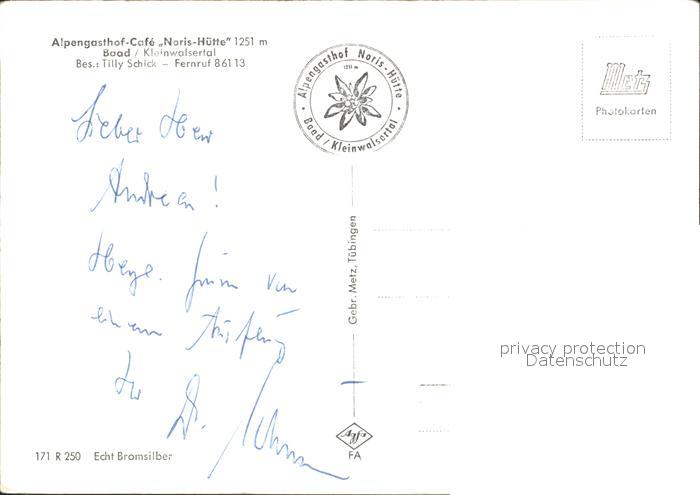 Alpengasthof-Café „Noris-Hütte" 1251 m
Baad / Kleinwalsertal
Bes.: Tilly Schick – Fernruf 86113
Alpengasthof Noris-Hütte
1251 m
Baad / Kleinwalsertal
Metz
Photokarten
Lieber Herr
Andreas!
Herzl. Grüße von
einem Ausflug
Ihr
Dr.
Gebr. Metz, Tübingen
privacy protection
Datenschutz
Agfa
FA
171 R 250 Echt Bromsilber